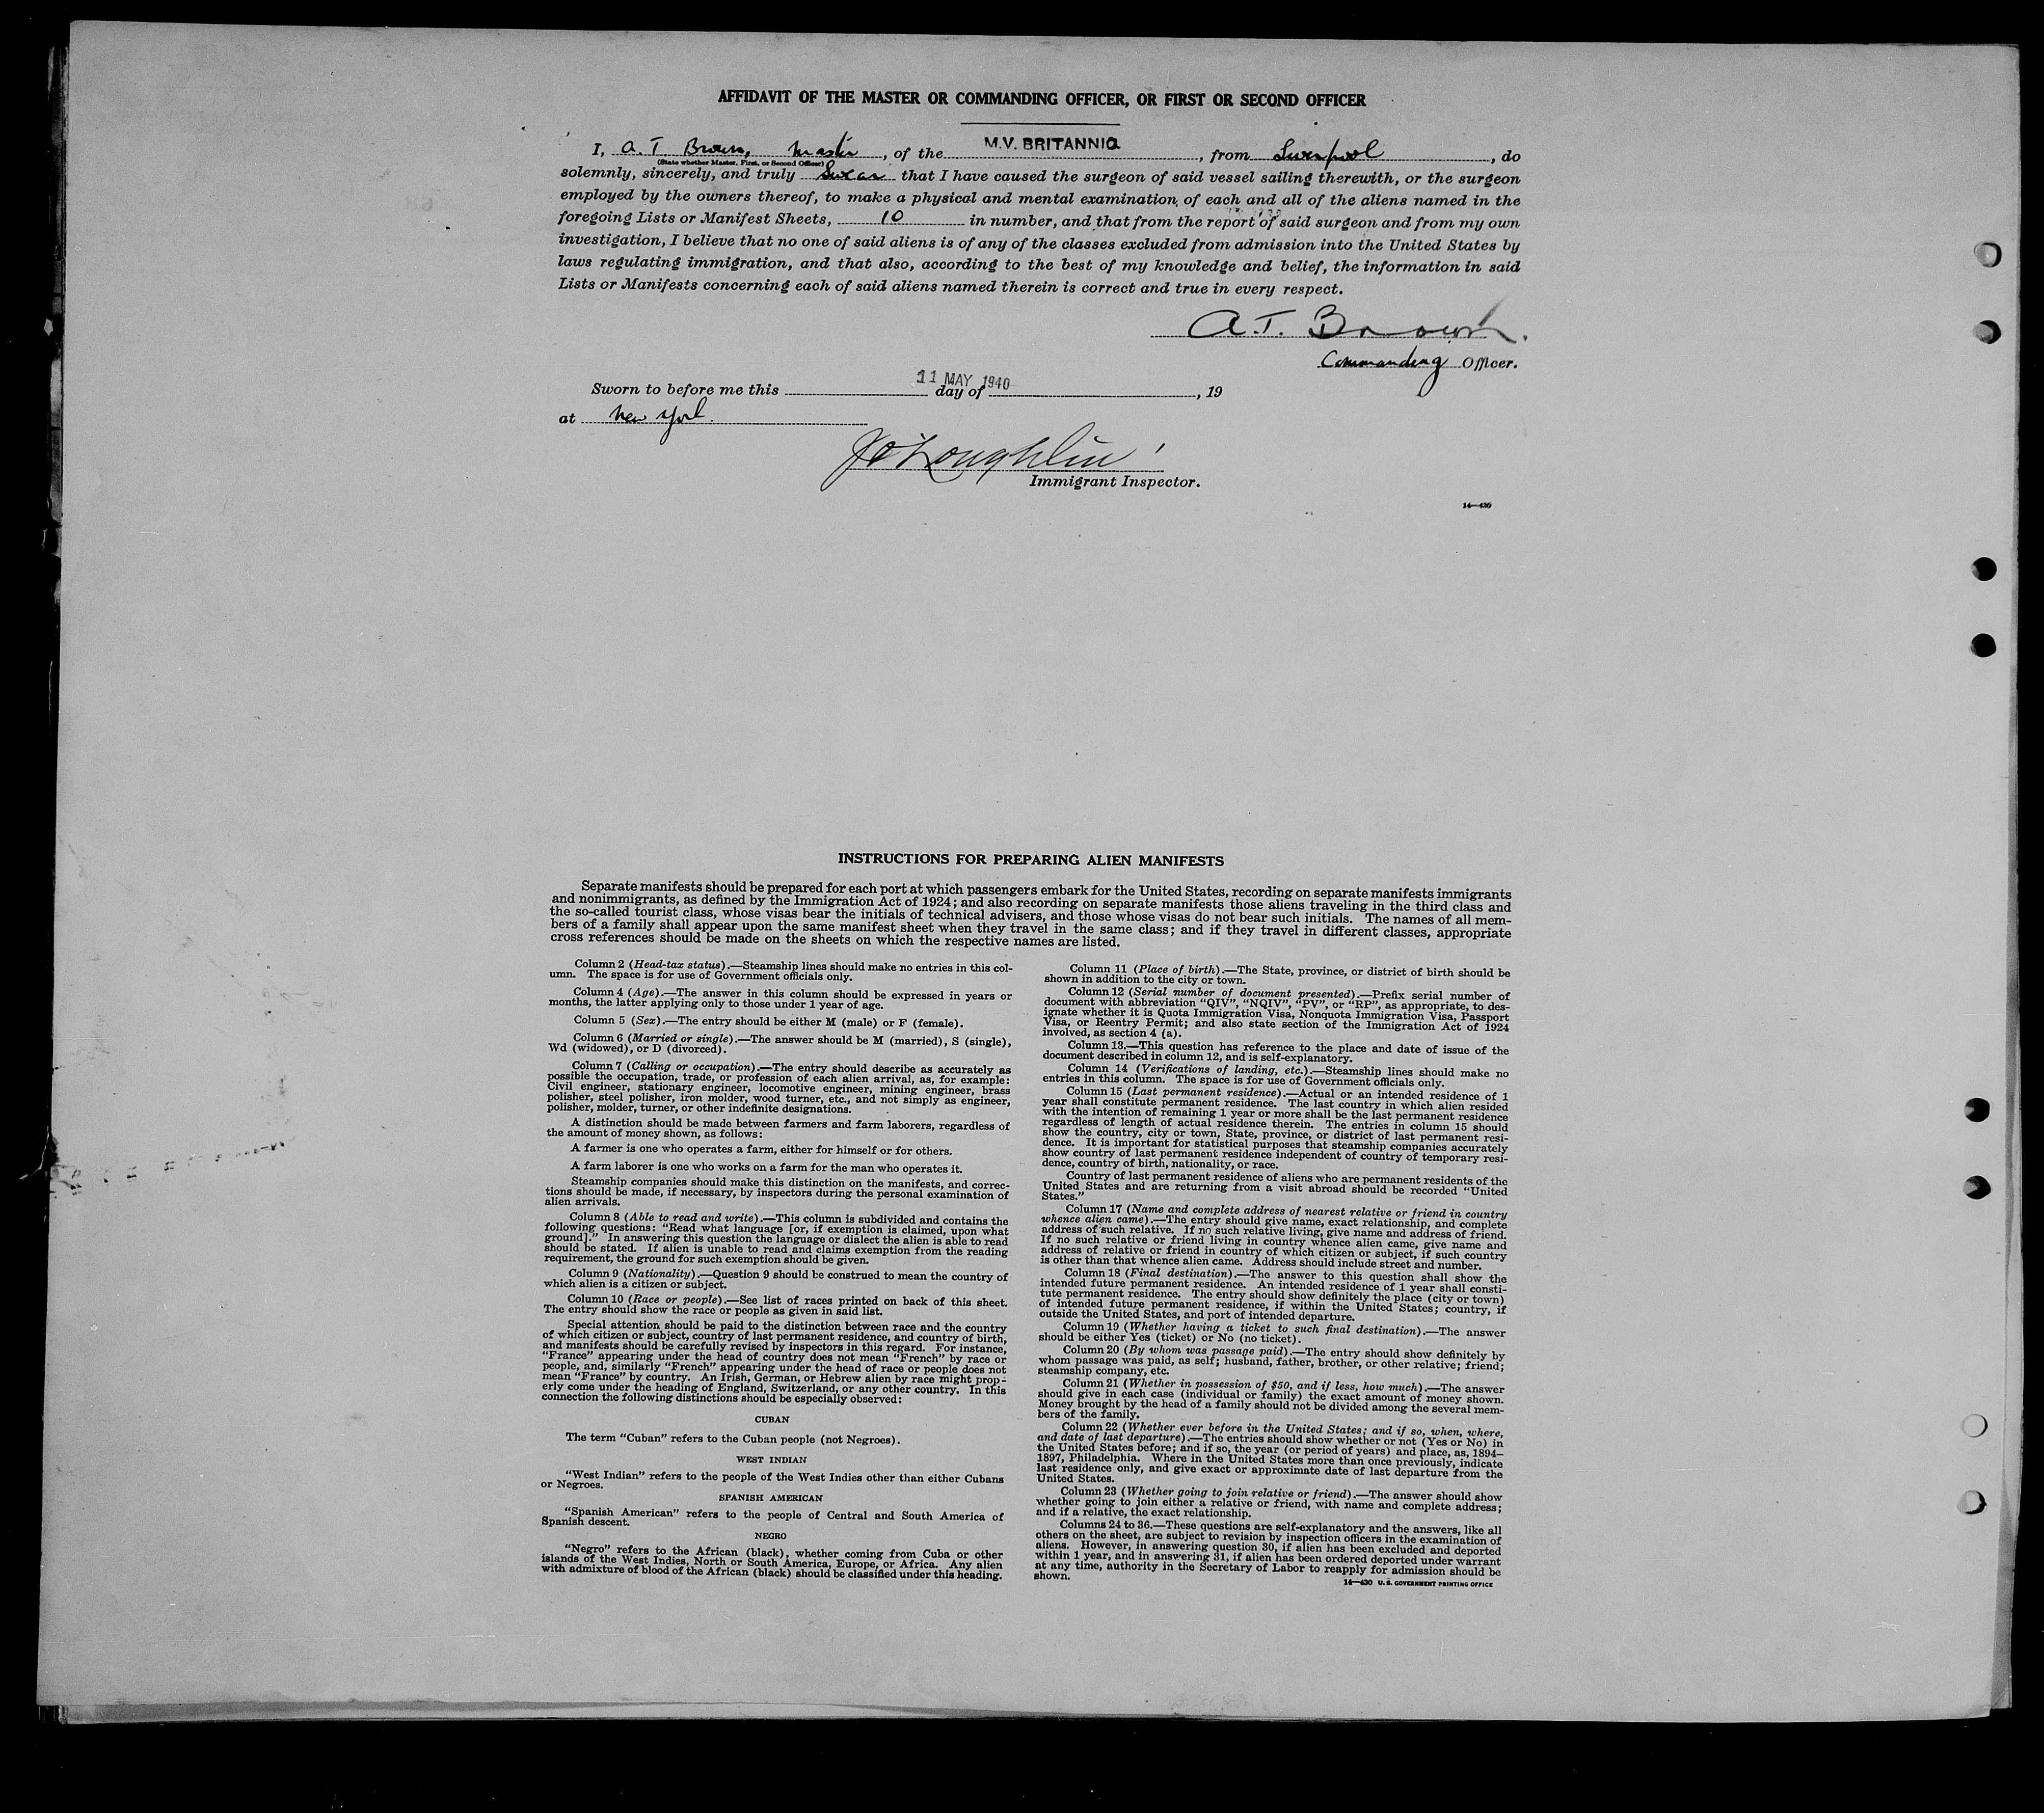 AFFIDAVIT OF THE MASTER OR COMMANDING OFFICER, OR FIRST OR SECOND OFFICER
I, A. T Brown, Master, of the M.V. BRITANNIC, from Liverpool, do
(State whether Master, First, or Second Officer)
solemnly, sincerely, and truly Swear that I have caused the surgeon of said vessel sailing therewith, or the surgeon
employed by the owners thereof, to make a physical and mental examination of each and all of the aliens named in the
foregoing Lists or Manifest Sheets, 10 in number, and that from the report of said surgeon and from my own
investigation, I believe that no one of said aliens is of any of the classes excluded from admission into the United States by
laws regulating immigration, and that also, according to the best of my knowledge and belief, the information in said
Lists or Manifests concerning each of said aliens named therein is correct and true in every respect.
A. T. Brown.
Commanding Officer.
11 MAY 1940
Sworn to before me this day of , 19
at New York.
Immigrant Inspector.
14—430
INSTRUCTIONS FOR PREPARING ALIEN MANIFESTS
Separate manifests should be prepared for each port at which passengers embark for the United States, recording on separate manifests immigrants
and nonimmigrants, as defined by the Immigration Act of 1924; and also recording on separate manifests those aliens traveling in the third class and
the so-called tourist class, whose visas bear the initials of technical advisers, and those whose visas do not bear such initials. The names of all mem-
bers of a family shall appear upon the same manifest sheet when they travel in the same class; and if they travel in different classes, appropriate
cross references should be made on the sheets on which the respective names are listed.
Column 2 (Head-tax status).—Steamship lines should make no entries in this col-
umn. The space is for use of Government officials only.
Column 4 (Age).—The answer in this column should be expressed in years or
months, the latter applying only to those under 1 year of age.
Column 5 (Sex).—The entry should be either M (male) or F (female).
Column 6 (Married or single).—The answer should be M (married), S (single),
Wd (widowed), or D (divorced).
Column 7 (Calling or occupation).—The entry should describe as accurately as
possible the occupation, trade, or profession of each alien arrival, as, for example:
Civil engineer, stationary engineer, locomotive engineer, mining engineer, brass
polisher, steel polisher, iron molder, wood turner, etc., and not simply as engineer,
polisher, molder, turner, or other indefinite designations.
A distinction should be made between farmers and farm laborers, regardless of
the amount of money shown, as follows:
A farmer is one who operates a farm, either for himself or for others.
A farm laborer is one who works on a farm for the man who operates it.
Steamship companies should make this distinction on the manifests, and correc-
tions should be made, if necessary, by inspectors during the personal examination of
alien arrivals.
Column 8 (Able to read and write).—This column is subdivided and contains the
following questions: "Read what language [or, if exemption is claimed, upon what
ground]." In answering this question the language or dialect the alien is able to read
should be stated. If alien is unable to read and claims exemption from the reading
requirement, the ground for such exemption should be given.
Column 9 (Nationality).—Question 9 should be construed to mean the country of
which alien is a citizen or subject.
Column 10 (Race or people).—See list of races printed on back of this sheet.
The entry should show the race or people as given in said list.
Special attention should be paid to the distinction between race and the country
of which citizen or subject, country of last permanent residence, and country of birth,
and manifests should be carefully revised by inspectors in this regard. For instance,
"France" appearing under the head of country does not mean "French" by race or
people, and, similarly "French" appearing under the head of race or people does not
mean "France" by country. An Irish, German, or Hebrew alien by race might prop-
erly come under the heading of England, Switzerland, or any other country. In this
connection the following distinctions should be especially observed:
CUBAN
The term "Cuban" refers to the Cuban people (not Negroes).
WEST INDIAN
"West Indian" refers to the people of the West Indies other than either Cubans
or Negroes.
SPANISH AMERICAN
"Spanish American" refers to the people of Central and South America of
Spanish descent.
NEGRO
"Negro" refers to the African (black), whether coming from Cuba or other
islands of the West Indies, North or South America, Europe, or Africa. Any alien
with admixture of blood of the African (black) should be classified under this heading.
Column 11 (Place of birth).—The State, province, or district of birth should be
shown in addition to the city or town.
Column 12 (Serial number of document presented).—Prefix serial number of
document with abbreviation "QIV", "NQIV", "PV", or "RP", as appropriate, to des-
ignate whether it is Quota Immigration Visa, Nonquota Immigration Visa, Passport
Visa, or Reentry Permit; and also state section of the Immigration Act of 1924
involved, as section 4 (a).
Column 13.—This question has reference to the place and date of issue of the
document described in column 12, and is self-explanatory.
Column 14 (Verifications of landing, etc.).—Steamship lines should make no
entries in this column. The space is for use of Government officials only.
Column 15 (Last permanent residence).—Actual or an intended residence of 1
year shall constitute permanent residence. The last country in which alien resided
with the intention of remaining 1 year or more shall be the last permanent residence
regardless of length of actual residence therein. The entries in column 15 should
show the country, city or town, State, province, or district of last permanent resi-
dence. It is important for statistical purposes that steamship companies accurately
show country of last permanent residence independent of country of temporary resi-
dence, country of birth, nationality, or race.
Country of last permanent residence of aliens who are permanent residents of the
United States and are returning from a visit abroad should be recorded "United
States."
Column 17 (Name and complete address of nearest relative or friend in country
whence alien came).—The entry should give name, exact relationship, and complete
address of such relative. If no such relative living, give name and address of friend.
If no such relative or friend living in country whence alien came, give name and
address of relative or friend in country of which citizen or subject, if such country
is other than that whence alien came. Address should include street and number.
Column 18 (Final destination).—The answer to this question shall show the
intended future permanent residence. An intended residence of 1 year shall consti-
tute permanent residence. The entry should show definitely the place (city or town)
of intended future permanent residence, if within the United States; country, if
outside the United States, and port of intended departure.
Column 19 (Whether having a ticket to such final destination).—The answer
should be either Yes (ticket) or No (no ticket).
Column 20 (By whom was passage paid).—The entry should show definitely by
whom passage was paid, as self; husband, father, brother, or other relative; friend;
steamship company, etc.
Column 21 (Whether in possession of $50, and if less, how much).—The answer
should give in each case (individual or family) the exact amount of money shown.
Money brought by the head of a family should not be divided among the several mem-
bers of the family.
Column 22 (Whether ever before in the United States; and if so, when, where,
and date of last departure).—The entries should show whether or not (Yes or No) in
the United States before; and if so, the year (or period of years) and place, as, 1894–
1897, Philadelphia. Where in the United States more than once previously, indicate
last residence only, and give exact or approximate date of last departure from the
United States.
Column 23 (Whether going to join relative or friend).—The answer should show
whether going to join either a relative or friend, with name and complete address;
and if a relative, the exact relationship.
Columns 24 to 36.—These questions are self-explanatory and the answers, like all
others on the sheet, are subject to revision by inspection officers in the examination of
aliens. However, in answering question 30, if alien has been excluded and deported
within 1 year, and in answering 31, if alien has been ordered deported under warrant
at any time, authority in the Secretary of Labor to reapply for admission should be
shown.
14—430 U. S. GOVERNMENT PRINTING OFFICE